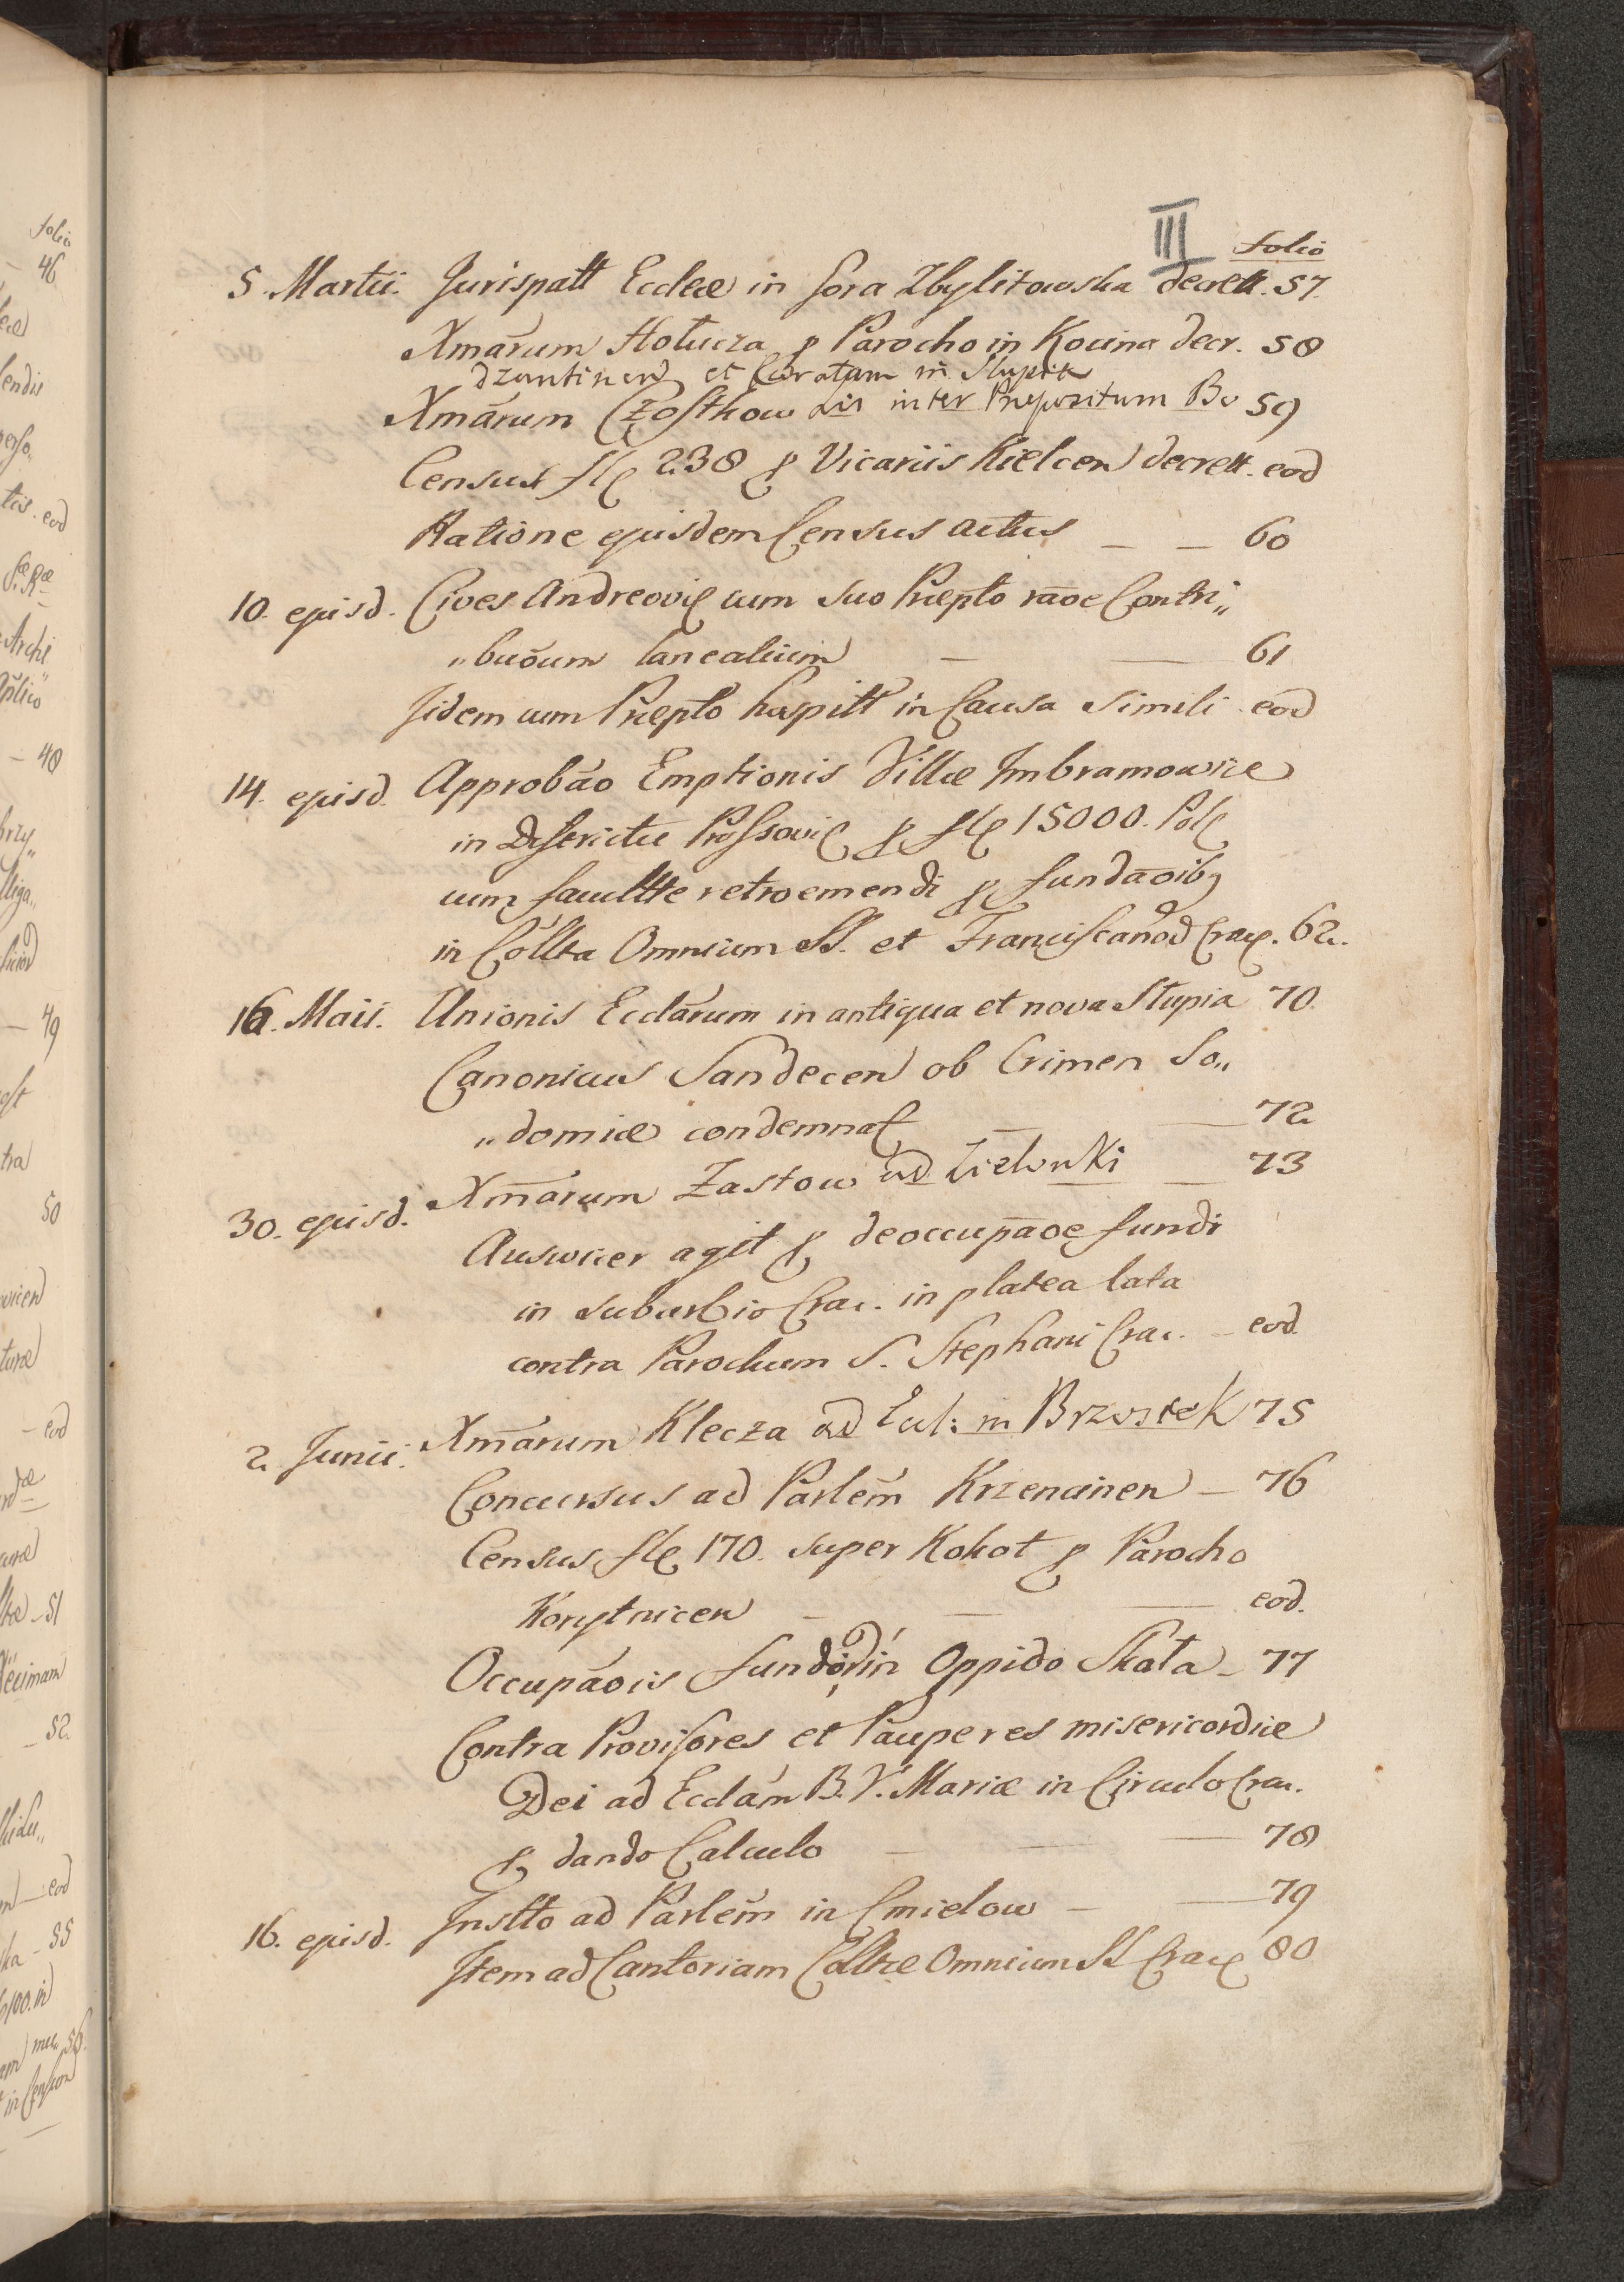 III folio
5. Martii. Jurispatt Ecclæ in Gora Zbylitowska decrett. 57.
Xmārum Hołucza p Parocho in Kocina decr. 58
dzantinen et Curatum in Slupia
Xmārum Czostkow Lis inter Prepozitum Bo 59
Census fl 238 p Vicariis Kielcen decrett. eod
Ratione ejusdem Census actus — — 60
10. ejusd. Cives Andreovi cum suo Præpto rāoe Contri„
„buōum lanealium — — 61
Jidem cum Præpto hospitt in Causa Simili eod
14. ejusd. Approbāo Emptionis Villæ Imbramowice
in Districtu Prossovi p fl 15000. Pol
cum facultte retroemendi p fundāoibq
in Collta Omnium SS. et Franciscanod Crac. 62.
16. Maii. Unionis Ecclārum in antiqua et nova Słupia 70.
Canonicus Sandecen ob Crimen So„
„domiæ condemnat — — 72
30. ejusd. Xmārum Zastow ad Zielonki — 73
Auswicer agit p deoccupāoe fundi
in suburbio Crac. in platea lata
contra Parochum S. Stephani Crac. — eod.
2. Junii. Xmārum Klecza ad Eccl: in Brzostek 75
Concursus ad Parlēm Krzencinen — 76
Census fl 170. super Kokot p Parocho
Korytnicen — — — eod.
Occupāois fundod in Oppido Skała — 77
Contra Provisores et Pauperes misericordiæ
Dei ad Ecclām B. V. Mariæ in Circulo Crac.
p dando Calculo — — — 78
16. ejusd. Instto ad Parlēm in Cmielow — — 79
Item ad Cantoriam Colltæ Omnium SS Crac 80